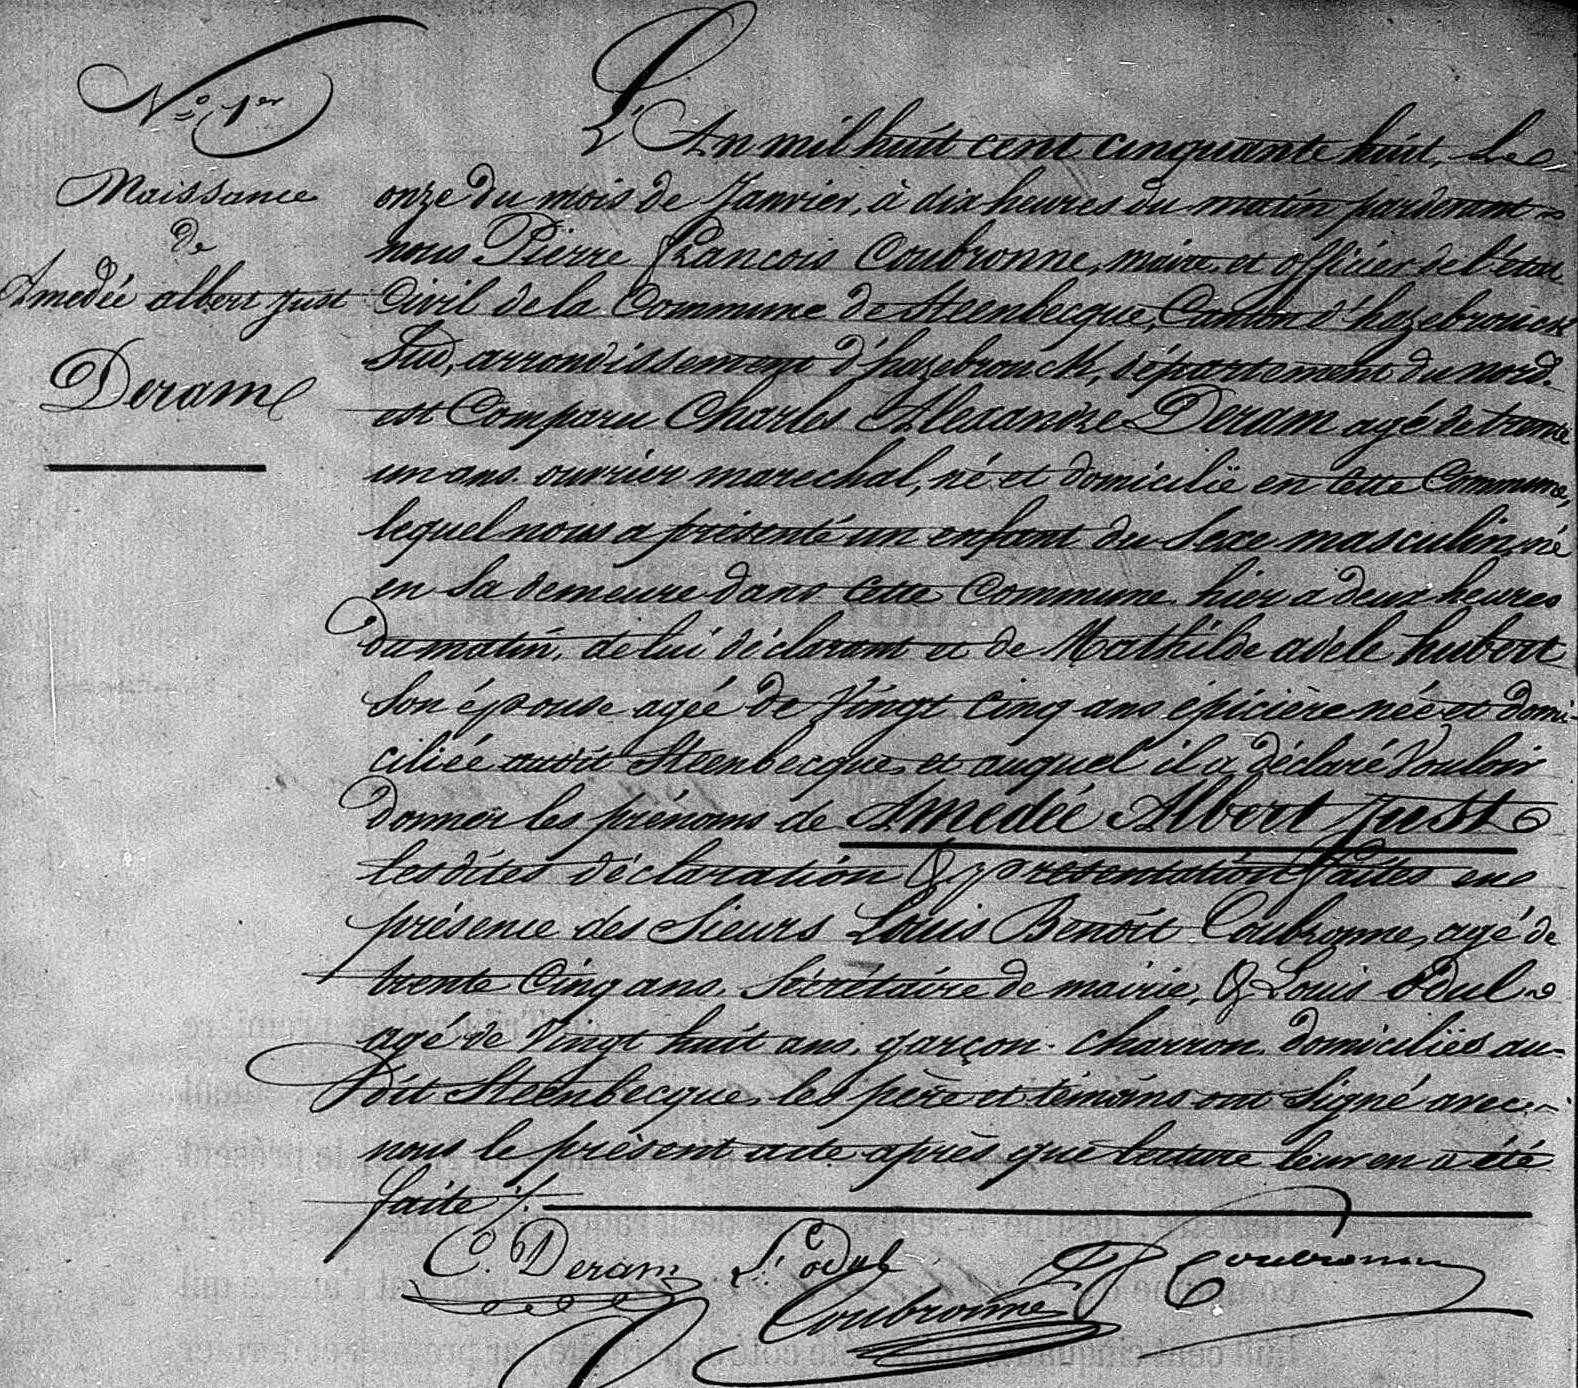 N.° 1er
Naissance
de
Amedée albert Just
Deram
L'An mil huit cent cinquante huit, le
onze du mois de Janvier, à dix heures du matin pardevant
nous Pierre François Coubronne, maire et officier de l'état
Civil de la Commune de Steenbecque, Canton d'hazebrouck
Sud, arrondissement d'hazebrouck, département du nord.
est Comparu Charles Alexandre Deram agé de trente
un ans. ouvrier marechal, né et domicilié en cette Commune,
lequel nous a présenté un enfant du Sexe masculin, né
en Sa demeure dans cette Commune hier a deux heures
du matin, de lui déclarant et de Mathilde adele hubert
Son épouse agée de Vingt Cinq ans épicière née et domi-
ciliée audit Steenbecque, et auquel il a déclaré Vouloir
donner les prénoms de Amédée Albert Just
lesdites déclaration & présentation faites en
présence des Sieurs Louis Benoît Coubronne, agé de
trente Cinq ans. Sécrétaire de mairie, & Louis Odul
agé de Vingt huit ans, garçon charron, domiciliés au-
dit Steenbecque, les père et témoins ont Signé avec
nous le présent acte après que lecture leur en a été
faite ./.
C. Deram L. odul P F Coubronne
Coubronne